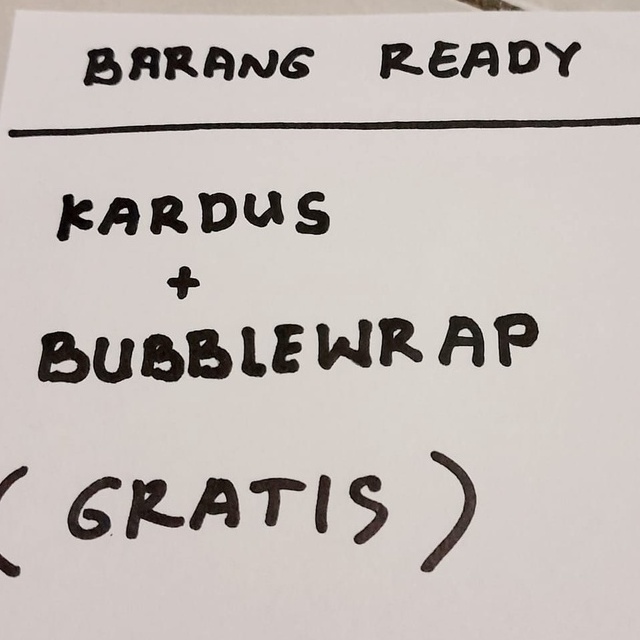 BARANG READY
KARDUS
+
BUBBLEWRAP
(GRATIS)